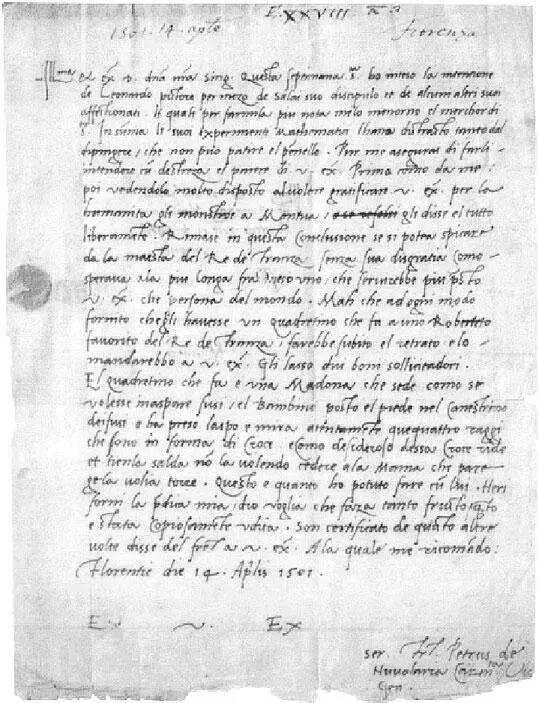 E. XXVIII
1501. 14. aplo
fiorenza
Ill.ma et ex. v. dña mia sing. Questa septemana s.ta ho inteso la intencione
de Leonardo pictore per mezo de Salai suo discipulo et de alcuni altri suoi
affectionati. li quali per farmila piu nota mello menorno el mercordi
s.to In suma li suoi experimenti Mathematici lhano distracto tanto dal
dipingere, che non puo patire el penello. Pur me asegurai di farli
intendere cũ destreza el parere di v. ex. Prima como da me:
poi vedendolo molto disposto al volere gratificare v. ex. per la
humanita gli monstroe a Mantua, gli disse el tutto
liberamẽte. Rimase in questa conclusione se si potea spiccare
da la maesta del Re de Franza senza sua disgratia como
sperava ala piu longa fra meso uno, che servirebbe piu p̃sto
v. ex. che persona del mondo. Mah che ad ogni modo
fornito chegli havesse un quadretino che fa a uno Roberteto
favorito del Re de Franza, farebbe subito el retrato e lo
mandarebbo a v. ex. Gli lasso dui boni sollicitadori.
El quadretino che fa e una Madona che sede como se
volesse inaspare fusi, el Bambino posto el piede nel canestrino
dei fusi e ha preso laspo e mira atentamẽte que quattro raggi
che sono in forma di Croce. E como desideroso dessa Croce ride
et tienla salda nõ la volendo cedere ala Mama che pare
gela volia torre. Questo e quanto ho potuto fare cũ lui. Heri
forni la p̃dica mia, dio voglia che faza tanto frutto q̃to
e stata copiosamẽte udita. Son certificato de quanto altre
volte disse del a v. ex. Ala quale me ricomãdo:
Florentie die 14. Aplis 1501.
E. v. Ex
ser. Fr. Petrus de
Nuvolaria Carm.
Gen.